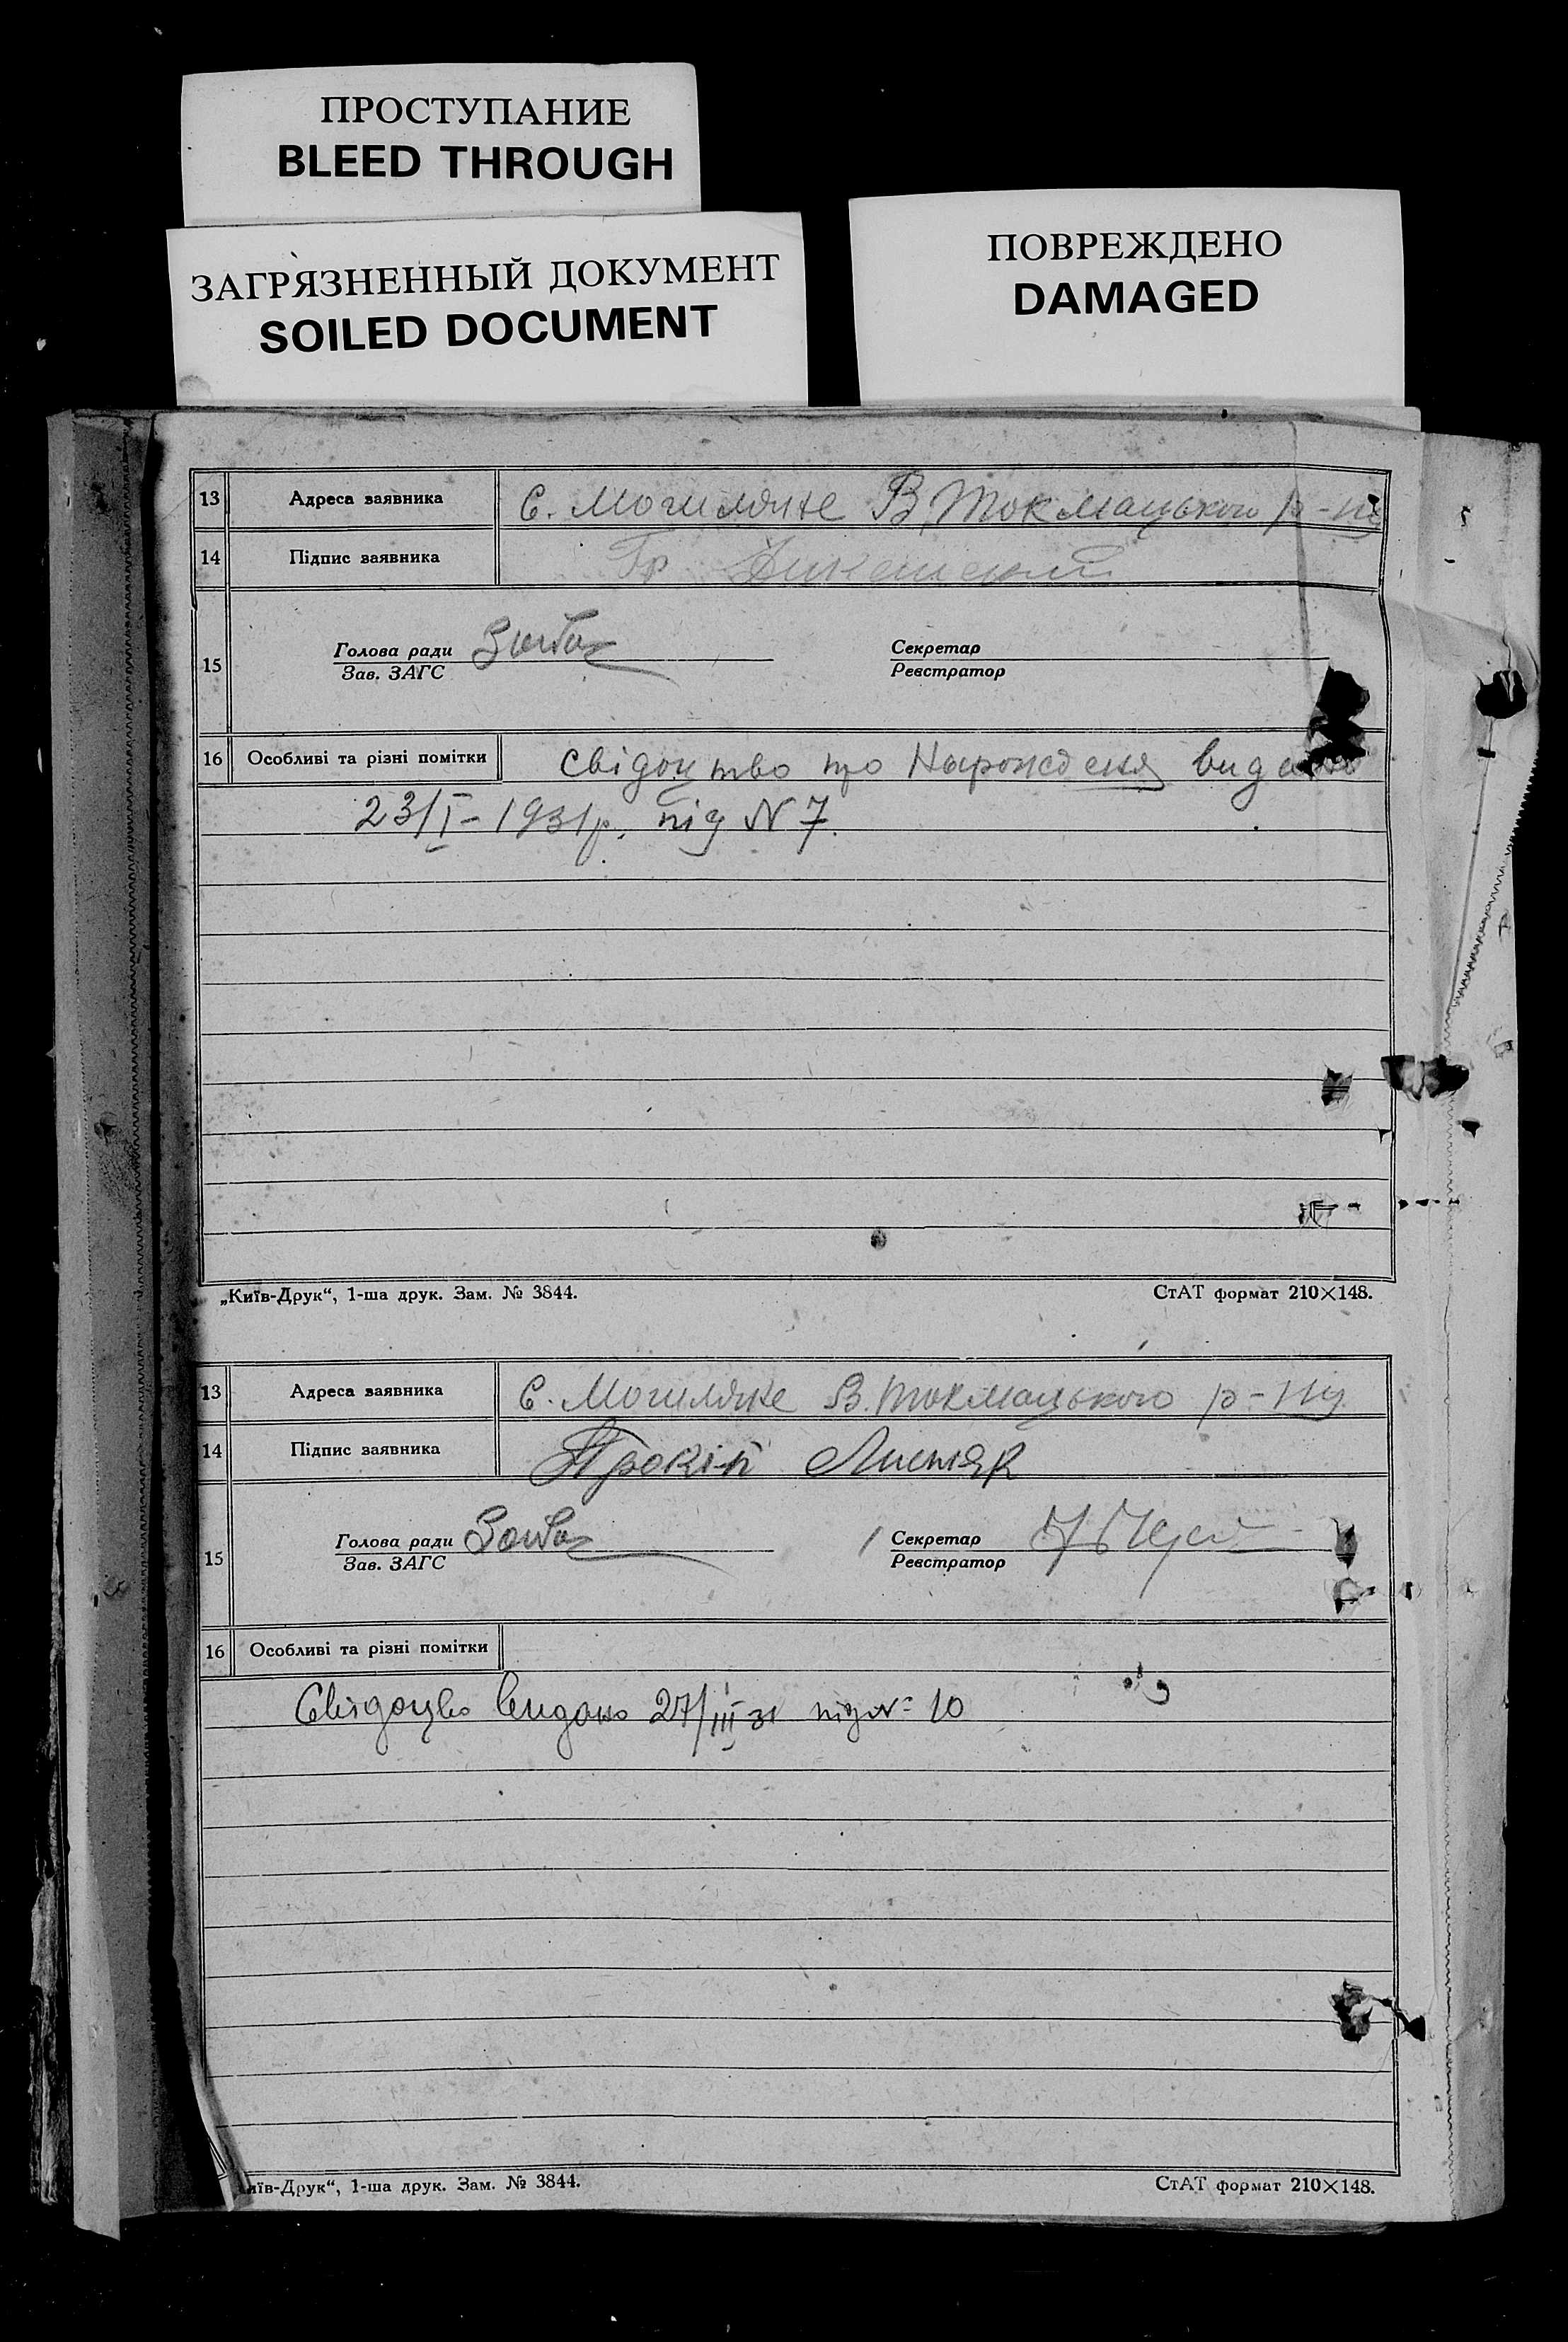 ПРОСТУПАНИЕ
BLEED THROUGH
ЗАГРЯЗНЕННЫЙ ДОКУМЕНТ
SOILED DOCUMENT
ПОВРЕЖДЕНО
DAMAGED
13 Адреса заявника С. Могиляне В. Токмацького р-ну
14 Підпис заявника Гр.
15 Голова ради Секретар
Зав. ЗАГС Реєстратор
16 Особливі та різні помітки свідоцтво про Народження видано
23/I-1931р. під N 7.
„Київ-Друк“, 1-ша друк. Зам. № 3844. СтАТ формат 210×148.
13 Адреса заявника С. Могиляне В. Токмацького р-ну
14 Підпис заявника Прокіп
15 Голова ради Секретар
Зав. ЗАГС Реєстратор
16 Особливі та різні помітки
Свідоцво видано 27/III 31 під № 10
иїв-Друк“, 1-ша друк. Зам. № 3844. СтАТ формат 210×148.